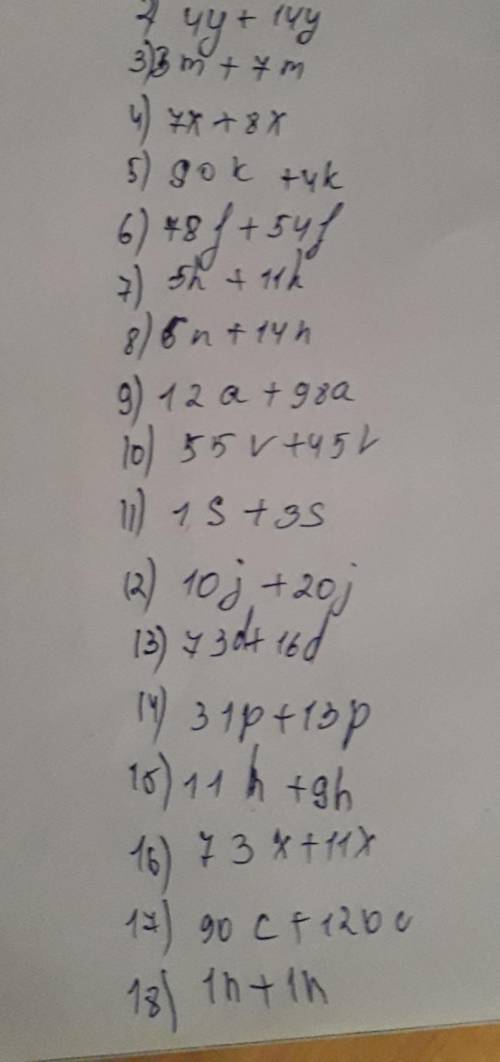 2) 4y + 14y
3) 3m + 7m
4) 7x + 8x
5) 90k + 4k
6) 78f + 54f
7) 5h + 11h
8) 6n + 14n
9) 12a + 98a
10) 55v + 45v
11) 1s + 3s
12) 10j + 20j
13) 73d + 16d
14) 31p + 13p
15) 11h + 9h
16) 73x + 11x
17) 90c + 120c
18) 1n + 1n